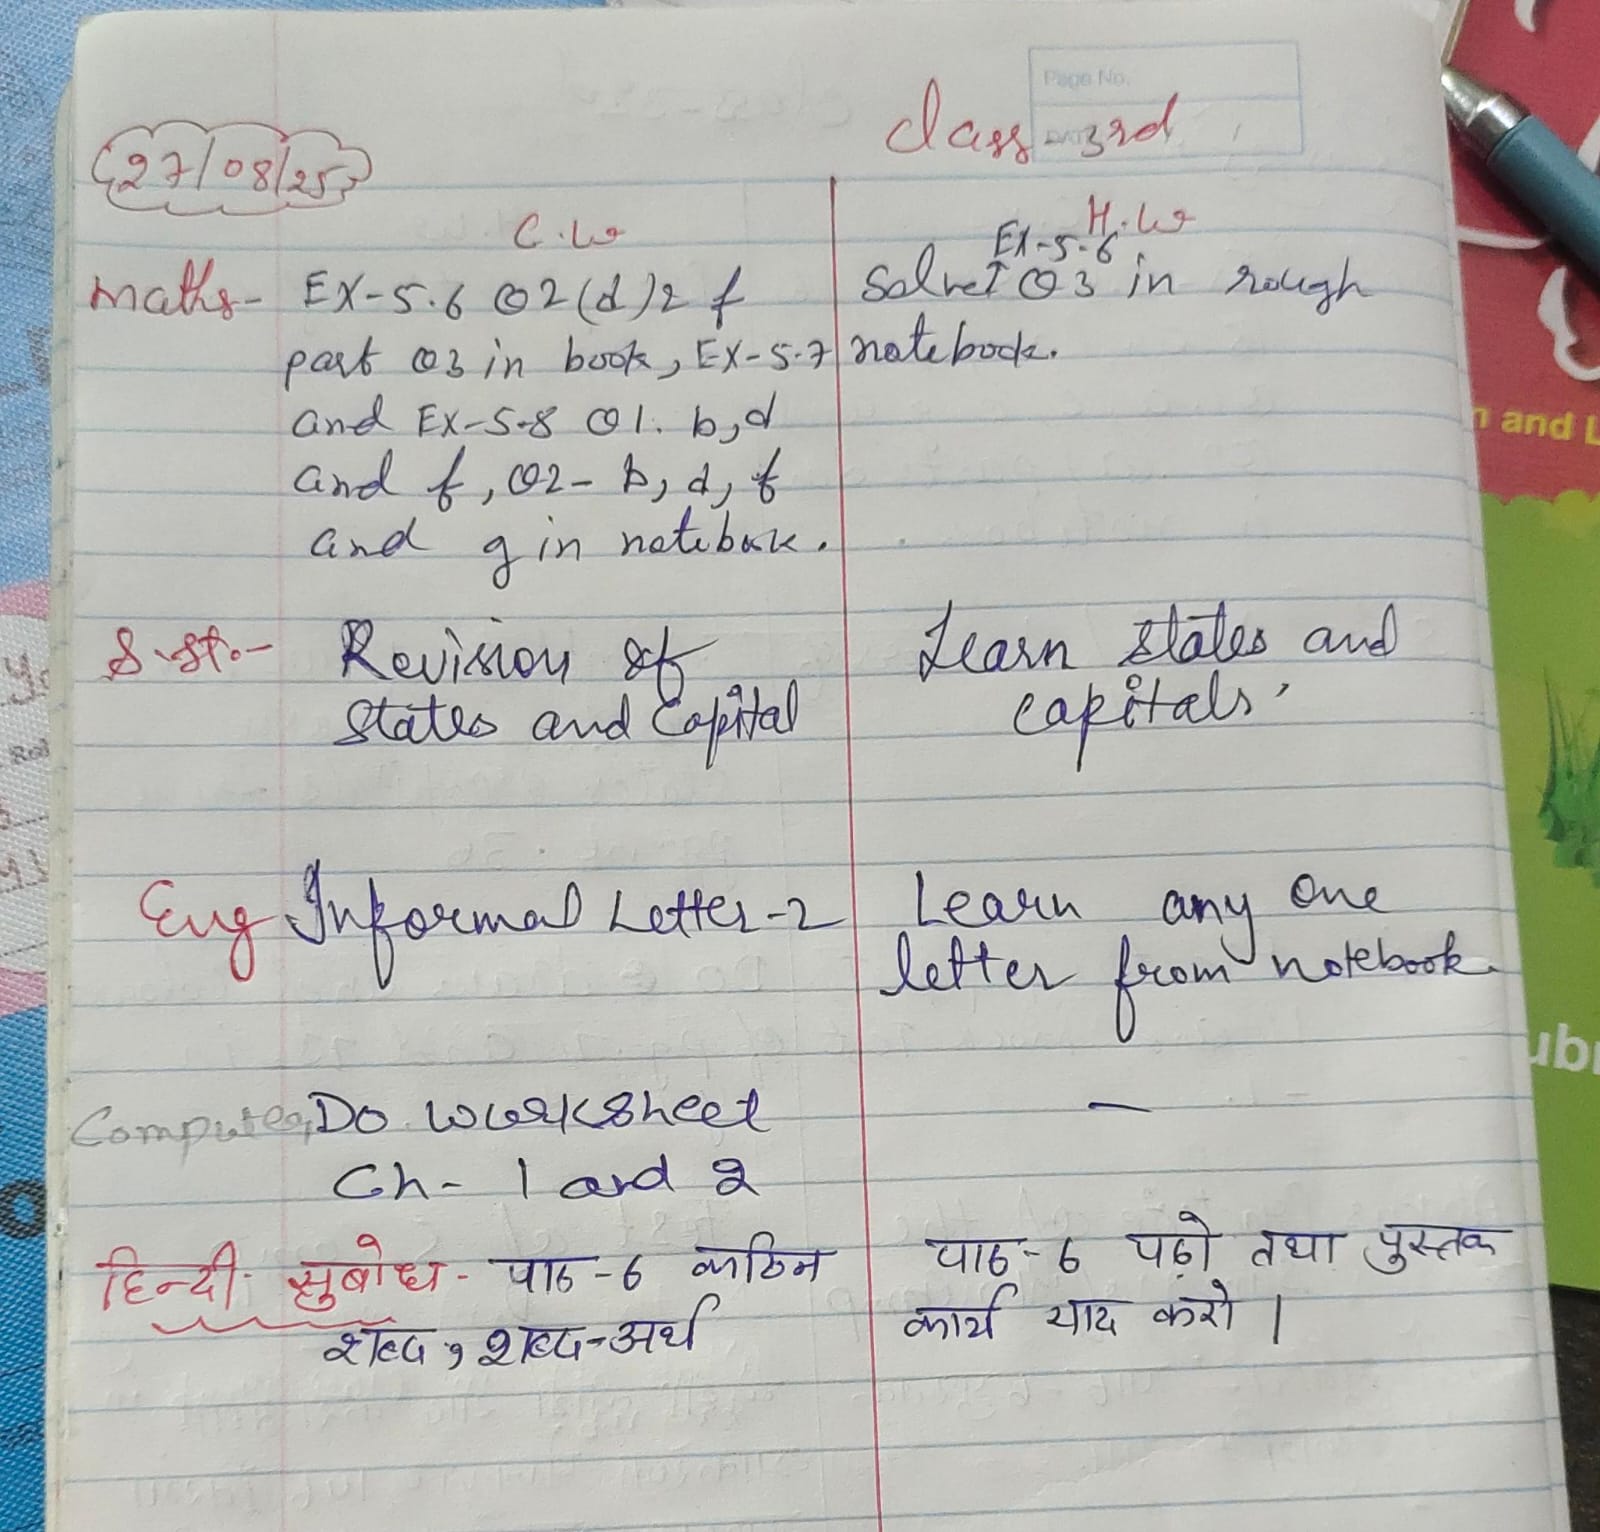 Page No.
class 3rd
27/08/25
C.W
H.W
Maths- EX-5.6 Q2(d)2 f
part Q3 in book, EX-5.7
and EX-5.8 Q1. b,d
and f, Q2- b, d, f
and g in notebook.
EX-5.6
Solve Q3 in rough
notebook.
S.St.- Revision of
States and Capital
Learn states and
capitals.
Eng Informal Letter-2
Learn any one
letter from notebook.
Computer, Do worksheet
Ch- 1 and 2
—
हिन्दी- सुबोध- पाठ-6 कठिन
शब्द, शब्द-अर्थ
पाठ-6 पढ़ो तथा पुस्तक
कार्य याद करो।
and L
ub